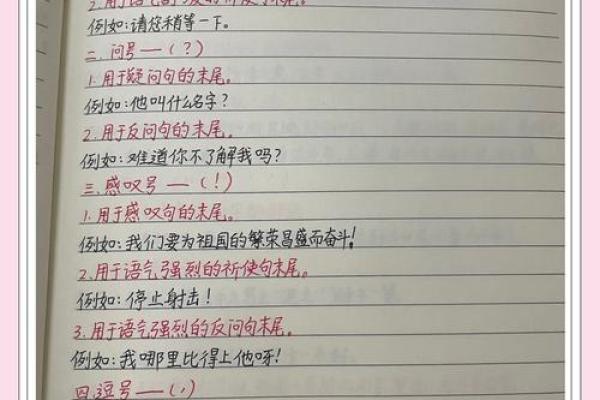 2.用于语气的祈使句末尾。
例如:请您稍等一下。
二.问号—(?)
1.用于疑问句的末尾。
例如:他叫什么名字?
2.用于反问句的末尾。
例如:难道你不了解我吗?
三.感叹号—(!)
1.用于感叹句的末尾。
例如:我们要为祖国的繁荣昌盛而奋斗!
2.用于语气强烈的祈使句末尾。
例如:停止射击!
3.用于语气强烈的反问句末尾。
例如:我哪里比得上他呀!
四.逗号—(,)